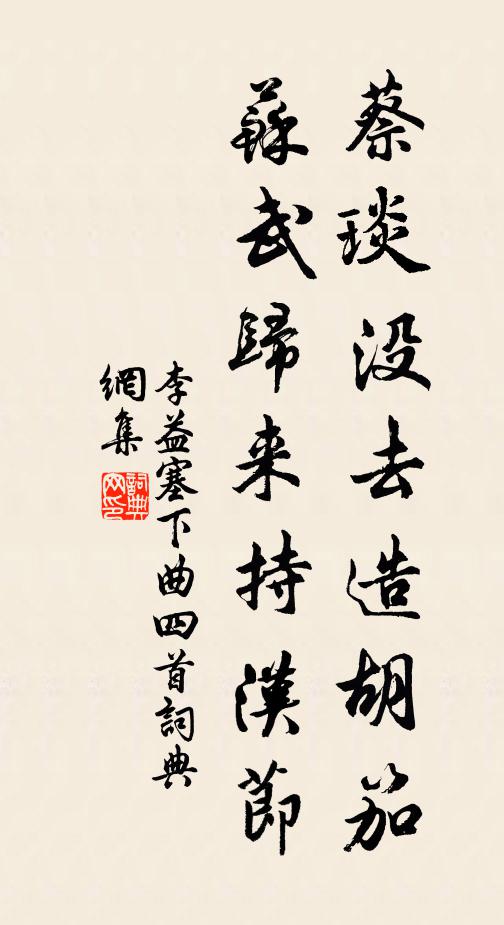 蔡琰没去造胡笳
蘇武歸来持漢節
李益塞下曲四首詞典
網集
詞典网印